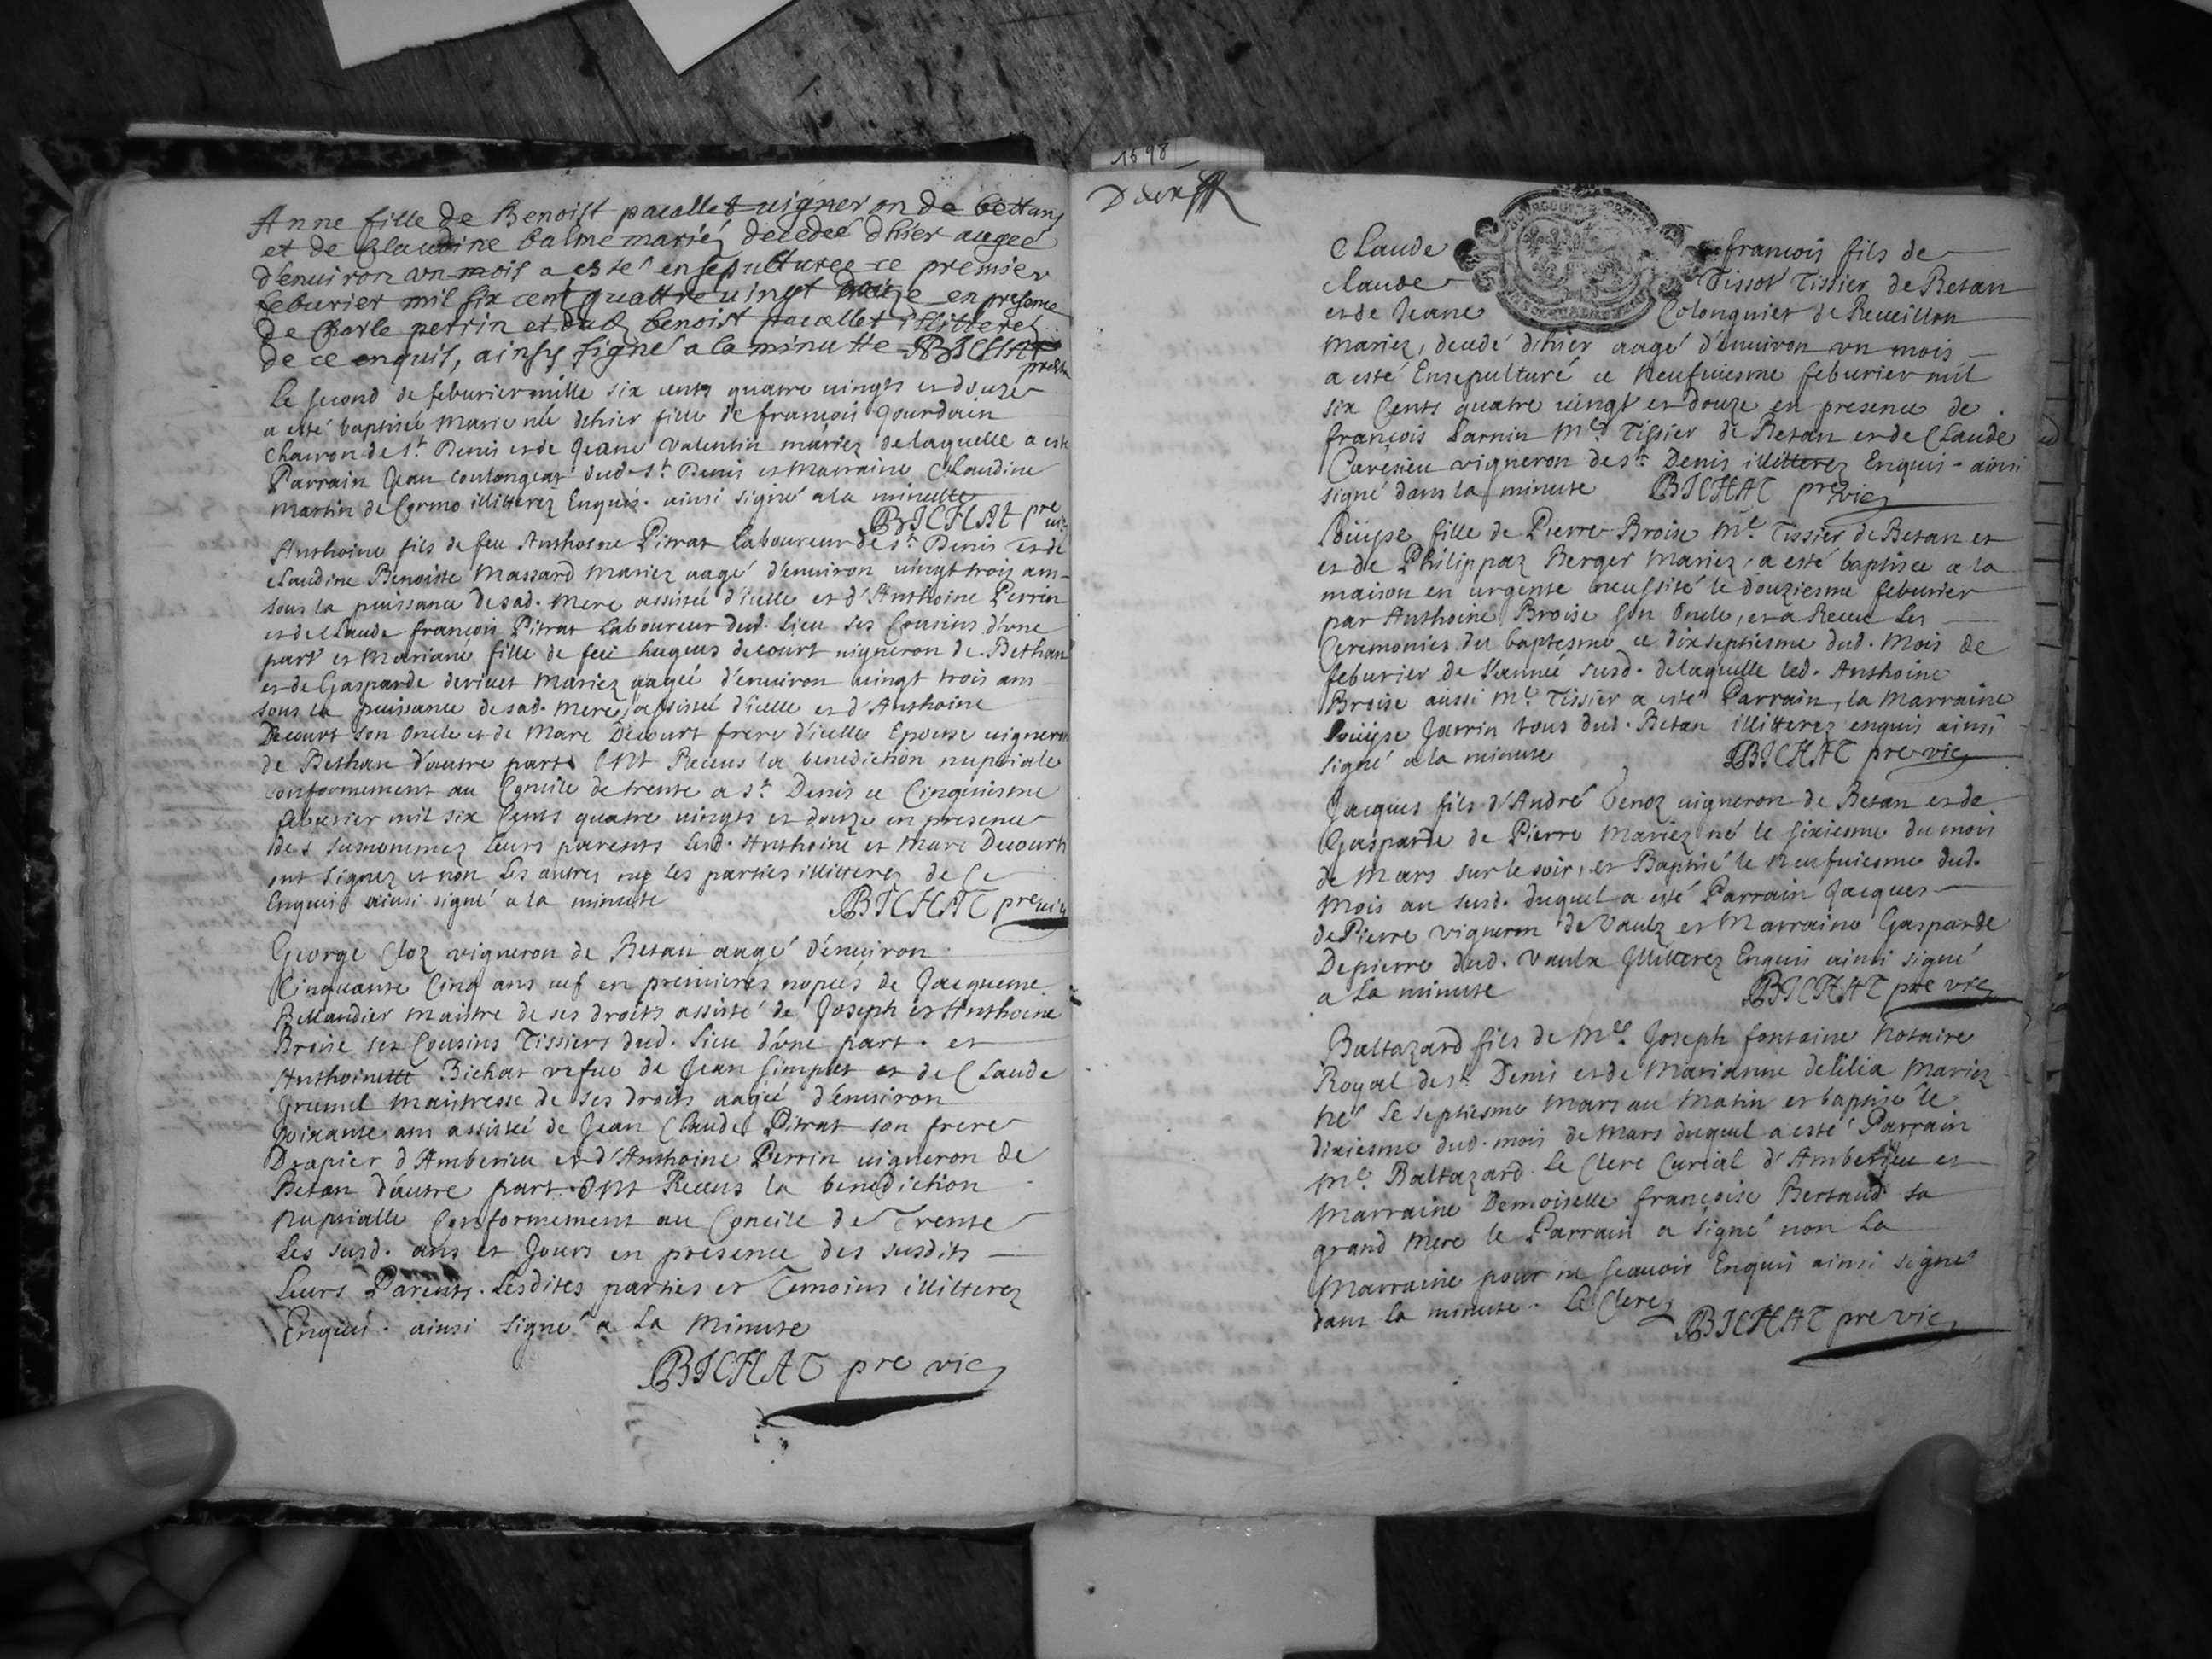 Anne fille de Benoist pacallet uigneron de bettan
et de Claudine balme mariéz decedeé dhier augeé
d'enuiron vn mois a esté ensepulturee ce premier
feburier mil six cent quattre uingt en presence
de Charle perrin et dud benoist pacallet illitterez
de ce enquis, ainsy signé a la minutte BICHAT
Le second de feburier mille six cents quatre uingts et douze
a esté baptisée Marie née dehier fille de françois Jourdain
charon de st Denis et de Jeane Valentin mariez de laquelle a esté
Parrain Jean Coulongeat dud. st Denis et Marraine Claudine
Martin de Cormo illitterez Enquis. ainsi signé a la minutte
BICHAT pre uic
Anthoine fils de feu Anthoine Pitrat Laboureur de st Denis et de
Claudine Benoiste Massard Mariez aagé d'enuiron uingt trois ans
sous la puissance de sad. Mere assistée d'icelle et d'Anthoine Perrin
et de Claude françois Pitrat Laboureur dud. Lieu ses Cousins d'vne
part et Mariane fille de feu hugues decourt uigneron de Bethan
et de Gasparde deriuet Mariez aagée d'enuiron uingt trois ans
sous la puissance de sad. Mere, assistée d'icelle et d'Anthoine
Decourt son Oncle et de Marc Decourt frere d'icelle Epouse uigneron
de Bethan d'autre part Ont Receus la benediction nuptiale
conformement au Concile de trente a st Denis ce Cinquiesme
feburier mil six Cents quatre uingts et douze en presence
des susnommez Leurs parents Lesd. Anthoine et Marc Decourt
ont signez et non Les autres ny les parties illitterez de Ce
Enquis ainsi signé a la minute BICHAT pre uic
George Cloz vigneron de Betan aagé d'enuiron
Cinquante Cinq ans uef en premieres nopces de Jacqueme
Billandier maistre de ses droits assisté de Joseph et Anthoine
Broise ses Cousins Tissiers dud. Lieu d'vne part. et
Anthoinette Bichat vefue de Jean Simplet et de Claude
Maitresse de ses droits aagée d'enuiron
soixante ans assistée de Jean Claude Pitrat son frere
Drapier d'Amberieu et d'Anthoine Perrin uigneron de
Betan d'autre part. Ont Receus la benediction
Nuptialle Conformement au Concile de Trente
Les susd. ans et Jours en presence des susdits
Leurs Parents. Lesdites parties et Temoins illitterez
Enquis. ainsi signé a La Minute
BICHAT pre vic
1598
Claude françois fils de
Claude Tissot Tissier de Betan
et de Jeane Colonguier de Reueillon
Mariez, decedé d'hier aagé d'enuiron vn mois
a esté Ensepulturé ce Neufuiesme feburier mil
six Cents quatre uingt et douze en presence de
françois Larnin Mre Tissier de Betan et de Claude
Caresieu vigneron de st Denis illitterez Enquis. ainsi
signé dans la minute BICHAT pre vic
Loüyse fille de Pierre Broise Me Tissier de Betan et
et de Philippaz Berger Mariez, a esté baptisée a la
maison en urgente necessité le douziesme feburier
par Anthoine Broise son Oncle, et a Receu Les
Ceremonies du baptesme ce dixseptiesme dud. Mois de
feburier de L'année susd. de laquelle led. Anthoine
Broise aussi Me Tissier a esté Parrain, la Marraine
Loüyse Jarrin tous dud. Betan illitterez enquis ainsi
signé a la minute BICHAT pre vic
Jacques fils d'André Venoz uigneron de Betan et de
Gasparde de Pierre Mariez né le sixiesme du mois
de Mars sur le soir, et Baptisé le Neufuiesme dud.
Mois an susd. duquel a esté Parrain Jacques
de Pierre vigneron de Vaulz et Marraine Gasparde
Depierre dud. Vaulx Jllitterez Enquis ainsi signé
a La minute BICHAT pre vic
Baltazard fils de Mre Joseph fontaine Notaire
Royal de st Denis et de Marianne delilia Mariez
né Le septiesme Mars au Matin et baptisé le
dixiesme dud. mois de Mars duquel a esté Parrain
Me Baltazard Le Clerc Curial d'Amberieu et
Marraine Demoiselle françoise Bertaud sa
grand Mere le Parrain a signé non La
Marraine pour ne sçauoir Enquis ainsi signé
dans la minute. Le Clerc
BICHAT pre vic